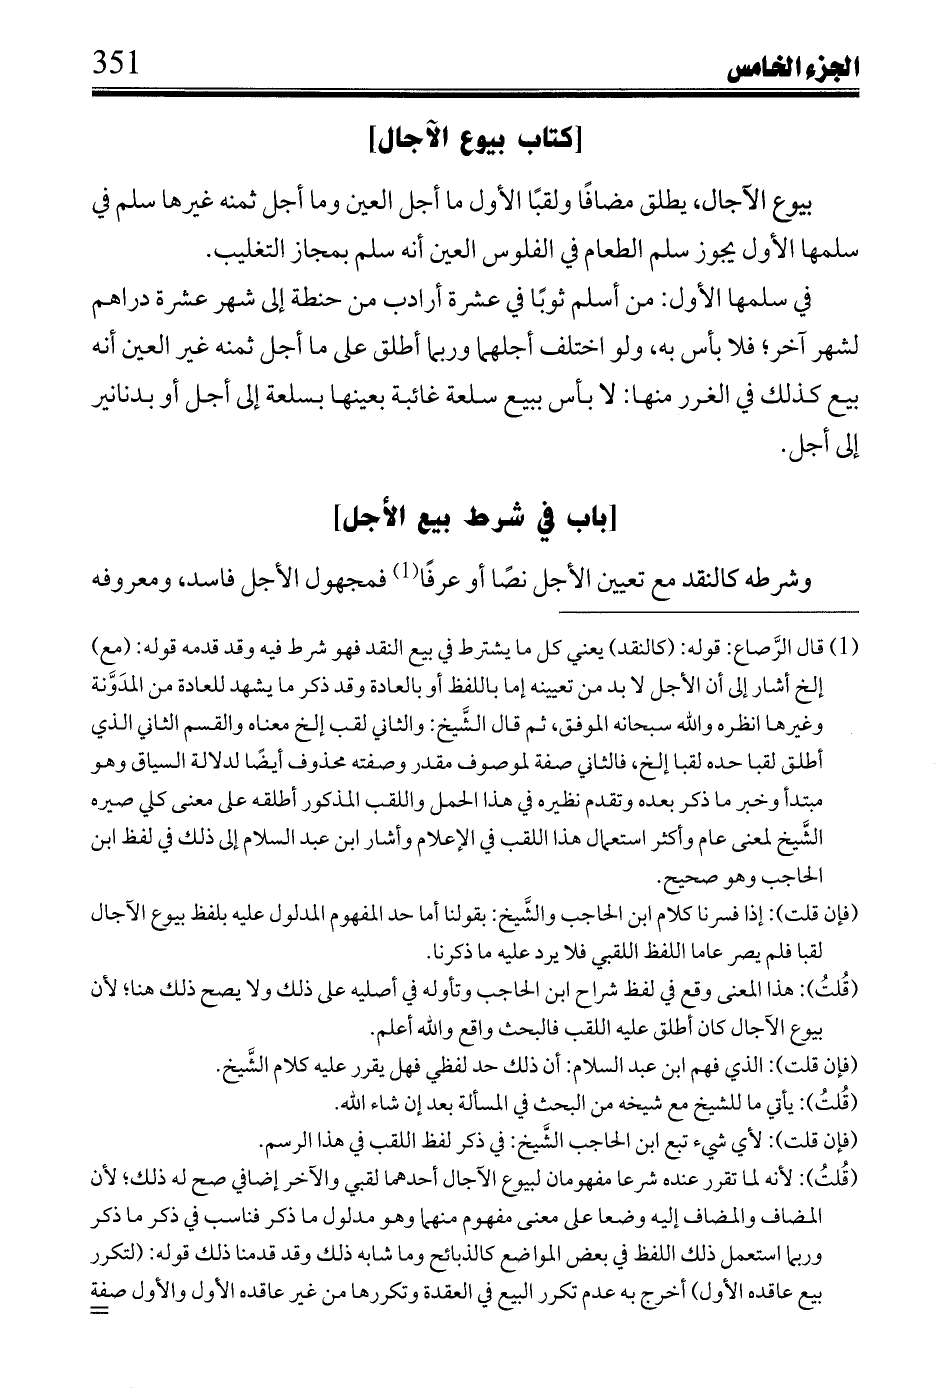 الجزء الخامس
351
[كتاب بيوع الآجال]
بيوع الآجال، يطلق مضافًا ولقبًا الأول ما أجل العين وما أجل ثمنه غيرها سلم في
سلمها الأول يجوز سلم الطعام في الفلوس العين أنه سلم بمجاز التغليب.
في سلمها الأول: من أسلم ثوبًا في عشرة أرادب من حنطة إلى شهر عشرة دراهم
لشهر آخر؛ فلا بأس به، ولو اختلف أجلهما وربما أطلق على ما أجل ثمنه غير العين أنه
بيع كذلك في الغرر منها: لا بأس ببيع سلعة غائبة بعينها بسلعة إلى أجل أو بدنانير
إلى أجل.
[باب في شرط بيع الأجل]
وشرطه كالنقد مع تعيين الأجل نصًا أو عرفًا(1) فمجهول الأجل فاسد، ومعروفه
(1) قال الرَّصاع: قوله: (كالنقد) يعني كل ما يشترط في بيع النقد فهو شرط فيه وقد قدمه قوله: (مع)
إلخ أشار إلى أن الأجل لا بد من تعيينه إما باللفظ أو بالعادة وقد ذكر ما يشهد للعادة من المدَوَّنة
وغيرها انظره والله سبحانه الموفق، ثم قال الشَّيخ: والثاني لقب إلخ معناه والقسم الثاني الذي
أطلق لقبا حده لقبا إلخ، فالثاني صفة لموصوف مقدر وصفته محذوف أيضًا لدلالة السياق وهو
مبتدأ وخبر ما ذكر بعده وتقدم نظيره في هذا الحمل واللقب المذكور أطلقه على معنى كلي صيره
الشَّيخ لمعنى عام وأكثر استعمال هذا اللقب في الإعلام وأشار ابن عبد السلام إلى ذلك في لفظ ابن
الحاجب وهو صحيح.
(فإن قلت): إذا فسرنا كلام ابن الحاجب والشَّيخ: بقولنا أما حد المفهوم المدلول عليه بلفظ بيوع الآجال
لقبا فلم يصر عاما اللفظ اللقبي فلا يرد عليه ما ذكرنا.
(قُلتُ): هذا المعنى وقع في لفظ شراح ابن الحاجب وتأوله في أصليه على ذلك ولا يصح ذلك هنا؛ لأن
بيوع الآجال كان أطلق عليه اللقب فالبحث واقع والله أعلم.
(فإن قلت): الذي فهم ابن عبد السلام: أن ذلك حد لفظي فهل يقرر عليه كلام الشَّيخ.
(قُلتُ): يأتي ما للشيخ مع شيخه من البحث في المسألة بعد إن شاء الله.
(فإن قلت): لأي شيء تبع ابن الحاجب الشَّيخ: في ذكر لفظ اللقب في هذا الرسم.
(قُلتُ): لأنه لما تقرر عنده شرعا مفهومان لبيوع الآجال أحدهما لقبي والآخر إضافي صح له ذلك؛ لأن
المضاف والمضاف إليه وضعا على معنى مفهوم منهما وهو مدلول ما ذكر فناسب في ذكر ما ذكر
وربما استعمل ذلك اللفظ في بعض المواضع كالذبائح وما شابه ذلك وقد قدمنا ذلك قوله: (لتكرر
بيع عاقده الأول) أخرج به عدم تكرر البيع في العقدة وتكررها من غير عاقده الأول والأول صفة
=